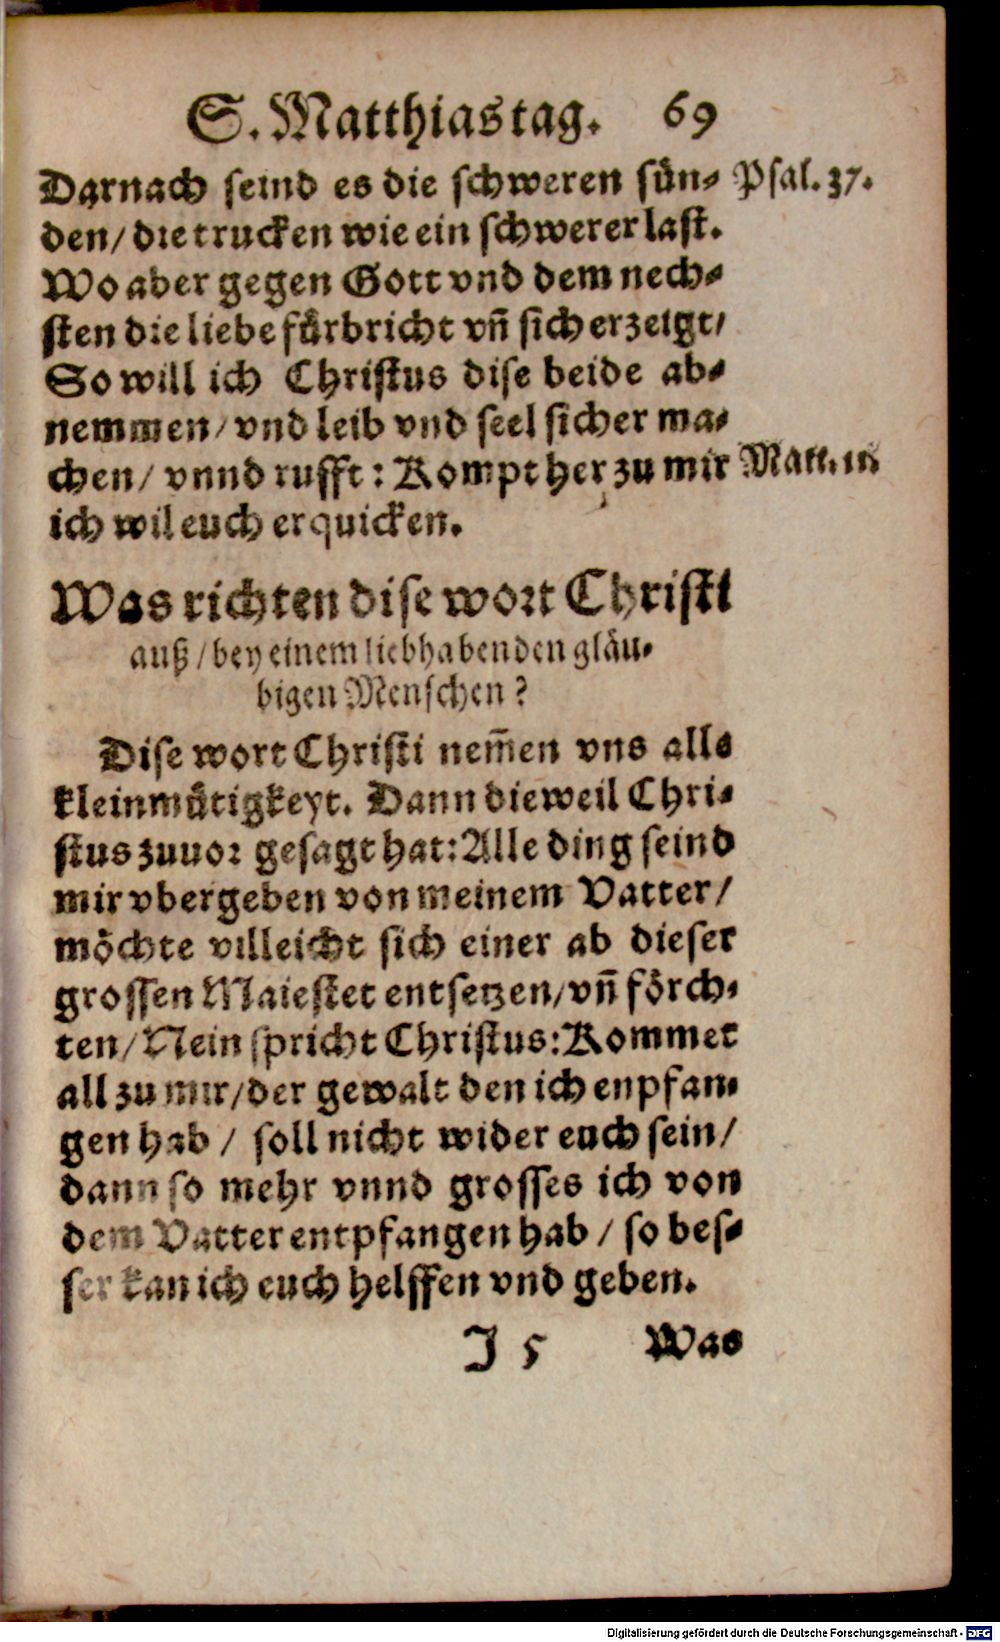 S. Matthiastag. 69
Darnach seind es die schweren sün- Psal. 37.
den/ die trucken wie ein schwerer last.
Wo aber gegen Gott vnd dem nech-
sten die liebe fürbricht vn̄ sich erzeigt/
So will ich Christus dise beide ab-
nemmen/ vnd leib vnd seel sicher ma-
chen/ vnnd rufft: Kompt her zu mir Matt. 11.
ich wil euch erquicken.
Was richten dise wort Christi
auß/ bey einem liebhabenden gläu-
bigen Menschen?
Dise wort Christi nem̄en vns alle
kleinmütigkeyt. Dann dieweil Chri-
stus zuuor gesagt hat: Alle ding seind
mir vbergeben von meinem Vatter/
möchte villeicht sich einer ab dieser
grossen Maiestet entsetzen/ vn̄ förch-
ten/ Nein spricht Christus: Kommet
all zu mir/ der gewalt den ich enpfan-
gen hab/ soll nicht wider euch sein/
dann so mehr vnnd grosses ich von
dem Vatter entpfangen hab/ so bes-
ser kan ich euch helffen vnd geben.
J 5 Was
Digitalisierung gefördert durch die Deutsche Forschungsgemeinschaft - DFG